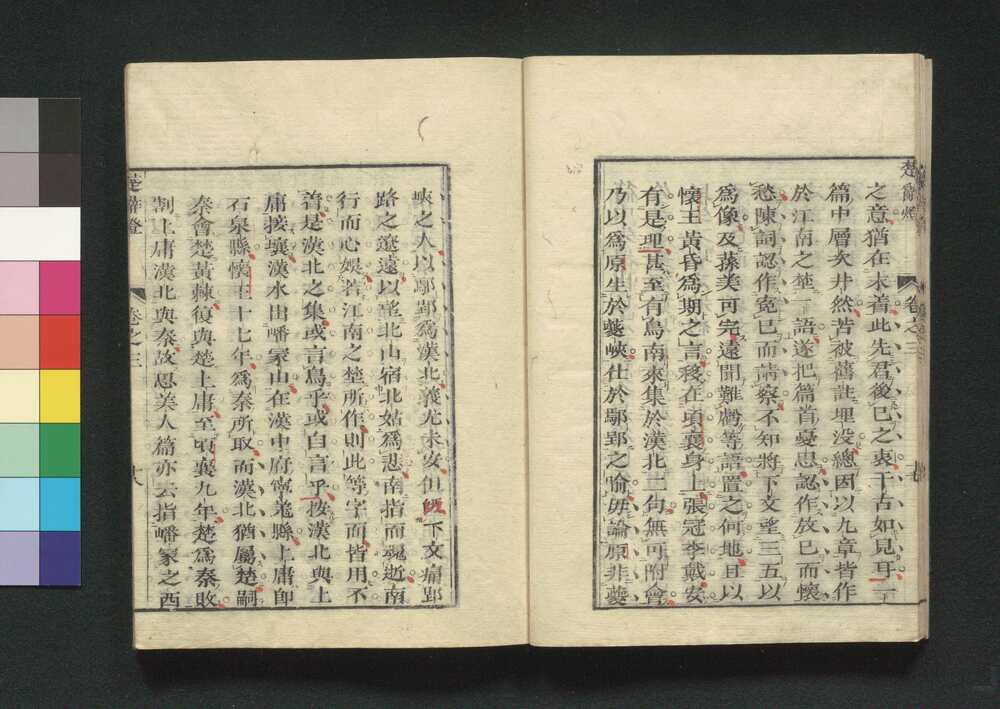 楚辭燈
卷之三
之意猶在未着此先君後己之衷千古如見耳一
篇中層次井然苦被舊註埋沒總因以九章皆作
於江南之埜一語遂把篇首憂思認作放已而懷
愁陳詞認作寃已而請察不知將下文望三五以
爲像及蓀美可完遠聞難虧等語置之何地且以
懷王黃昏爲期之言移在頃襄身上張冠李戴安
有是理甚至有鳥南來集於漢北二句無可附會
乃以爲原生於夔峽仕於鄢郢之喻毋論原非夔
峽之人以鄢郢爲漢北義尤未安但細下文痛郢
路之遼遠以望北山宿北姑爲悲南指而魂逝南
行而心娛若江南之埜所作則此等字面皆用不
着是漢北之集或言鳥乎或自言乎按漢北與上
庸接壤漢水出嶓冢山在漢中府寧羗縣上庸即
石泉縣懷王十七年爲秦所取而漢北猶屬楚嗣
秦會楚黃棘復與楚上庸至頃襄九年楚爲秦敗
割上庸漢北與秦故思美人篇亦云指嶓冢之西
楚辭燈
卷之三
十八